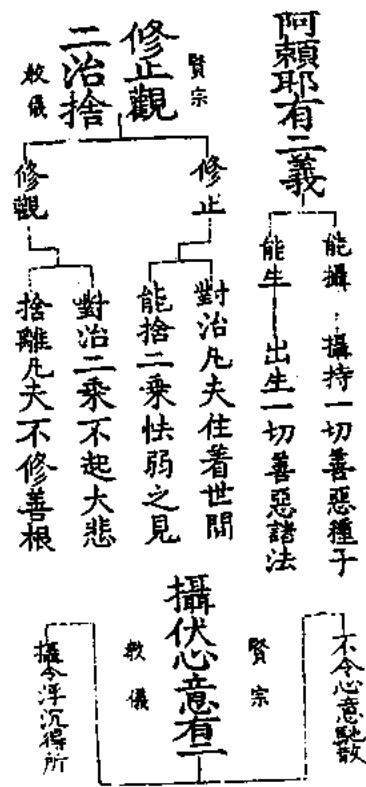 阿賴耶有二義
能攝
攝持一切善惡種子
能生
出生一切善惡諸法
修止觀
二治捨
賢宗
教儀
修止
對治凡夫住着世間
能捨二乘怯弱之見
修觀
對治二乘不起大悲
捨離凡夫不修善根
攝伏心意有二
賢宗
教儀
不令心意馳散
攝令浮沉得所